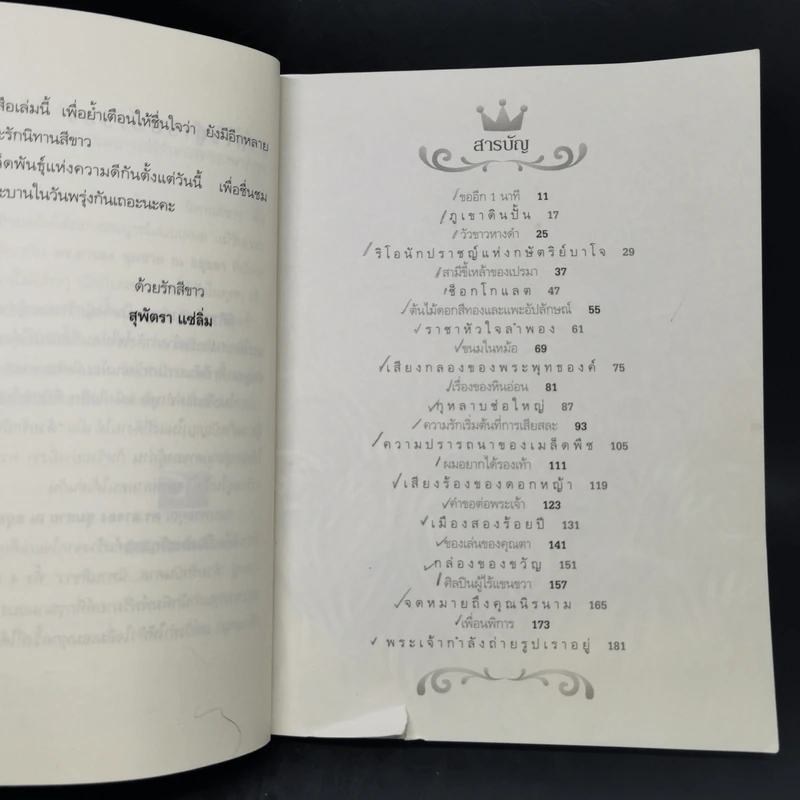 สือเล่มนี้ เพื่อย้ำเตือนให้ชื่นใจว่า ยังมีอีกหลาย
ะรักนิทานสีขาว
ล็ดพันธุ์แห่งความดีกันตั้งแต่วันนี้ เพื่อชื่นชม
ะบานในวันพรุ่งกันเถอะนะคะ
ด้วยรักสีขาว
สุพัตรา แซ่ลิ่ม
สารบัญ
ขออีก 1 นาที 11
ภูเขาดินปั้น 17
วัวขาวหางดำ 25
ริโอนักปราชญ์แห่งกษัตริย์บาโจ 29
สามีขี้เหล้าของเปรมา 37
ช็อกโกแลต 47
ต้นไม้ดอกสีทองและแพะอัปลักษณ์ 55
ราชาหัวใจลำพอง 61
ขนมในหม้อ 69
เสียงกลองของพระพุทธองค์ 75
เรื่องของหินอ่อน 81
กุหลาบช่อใหญ่ 87
ความรักเริ่มต้นที่การเสียสละ 93
ความปรารถนาของเมล็ดพืช 105
ผมอยากได้รองเท้า 111
เสียงร้องของดอกหญ้า 119
คำขอต่อพระเจ้า 123
เมืองสองร้อยปี 131
ของเล่นของคุณตา 141
กล่องของขวัญ 151
ศิลปินผู้ไร้แขนขวา 157
จดหมายถึงคุณนิรนาม 165
เพื่อนพิการ 173
พระเจ้ากำลังถ่ายรูปเราอยู่ 181